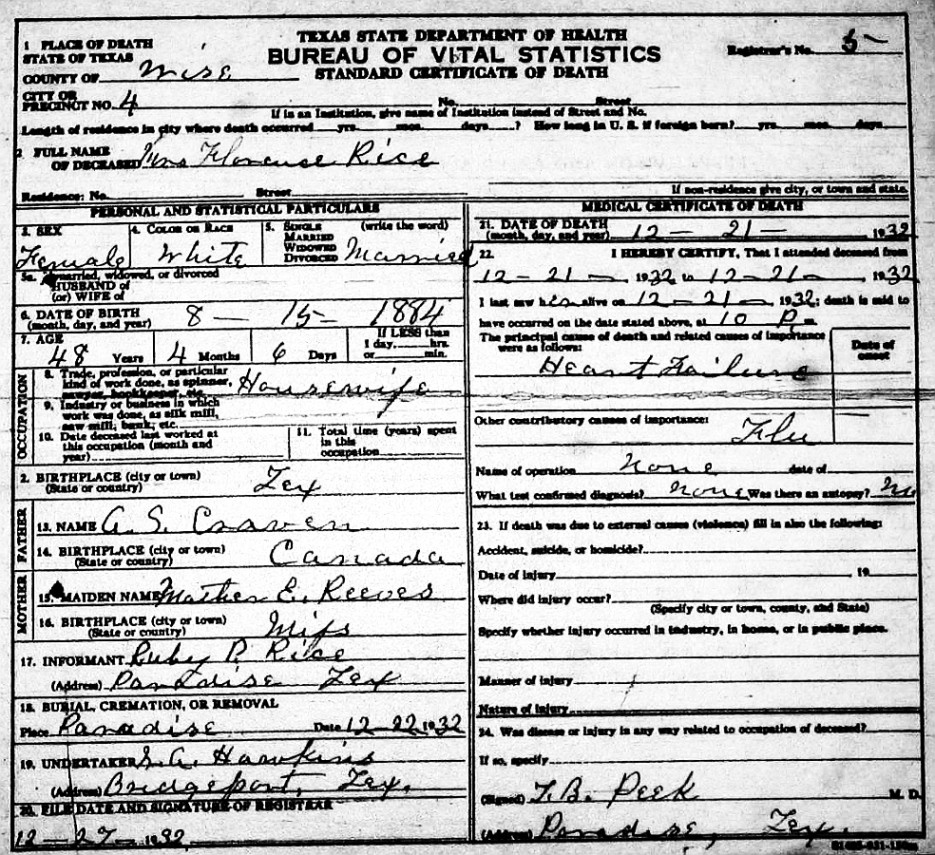 TEXAS STATE DEPARTMENT OF HEALTH
BUREAU OF VITAL STATISTICS
STANDARD CERTIFICATE OF DEATH
Registrar's No. 5-
1 PLACE OF DEATH
STATE OF TEXAS
COUNTY OF Wise
CITY OR
PRECINCT NO. 4 No. Street
If in an Institution, give name of Institution instead of Street and No.
Length of residence in city where death occurred yrs. mos. days ? How long in U. S. if foreign born? yrs. mos. days
2 FULL NAME
OF DECEASED Mrs Florence Rice
Residence: No. Street
If non-residence give city, or town and state.
PERSONAL AND STATISTICAL PARTICULARS
3. SEX Female
4. COLOR OR RACE White
5. SINGLE (write the word)
MARRIED
WIDOWED
DIVORCED Married
5a. If married, widowed, or divorced
HUSBAND of
(or) WIFE of
6. DATE OF BIRTH
(month, day, and year) 8 - 15 - 1884
7. AGE 48 Years 4 Months 6 Days
If LESS than
1 day, hrs.
or min.
OCCUPATION
8. Trade, profession, or particular
kind of work done, as spinner,
sawyer, bookkeeper, etc. Housewife
9. Industry or business in which
work was done, as silk mill,
saw mill, bank, etc.
10. Date deceased last worked at
this occupation (month and
year)
11. Total time (years) spent
in this
occupation
2. BIRTHPLACE (city or town)
(State or country) Tex
FATHER
13. NAME A. S. Craven
14. BIRTHPLACE (city or town)
(State or country) Canada
MOTHER
15. MAIDEN NAME E. Reeves
16. BIRTHPLACE (city or town)
(State or country) Miss
17. INFORMANT Ruby P. Rice
(Address) Paradise Tex
18. BURIAL, CREMATION, OR REMOVAL
Place Paradise Date 12-22 1932
19. UNDERTAKER Hawkins
(Address) Bridgeport, Tex.
20. FILE DATE AND SIGNATURE OF REGISTRAR
12 - 27 - 1932
MEDICAL CERTIFICATE OF DEATH
21. DATE OF DEATH
(month, day, and year) 12 - 21 - 1932
22. I HEREBY CERTIFY, That I attended deceased from
12 - 21 - 1932 to 12 - 21 - 1932
I last saw her alive on 12 - 21 - 1932; death is said to
have occurred on the date stated above, at 10 P m.
The principal cause of death and related causes of importance
were as follows:
Date of
onset
Heart Failure
Other contributory causes of importance:
Flu
Name of operation none date of
What test confirmed diagnosis? none Was there an autopsy? No
23. If death was due to external causes (violence) fill in also the following:
Accident, suicide, or homicide?
Date of injury 19
Where did injury occur?
(Specify city or town, county, and State)
Specify whether injury occurred in industry, in home, or in public place.
Manner of injury
Nature of injury
24. Was disease or injury in any way related to occupation of deceased?
If so, specify
(Signed) T. B. Peek M. D.
(Address) Paradise, Tex.